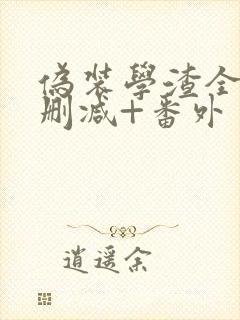 偽裝學渣全
刪減+番外
逍遥余